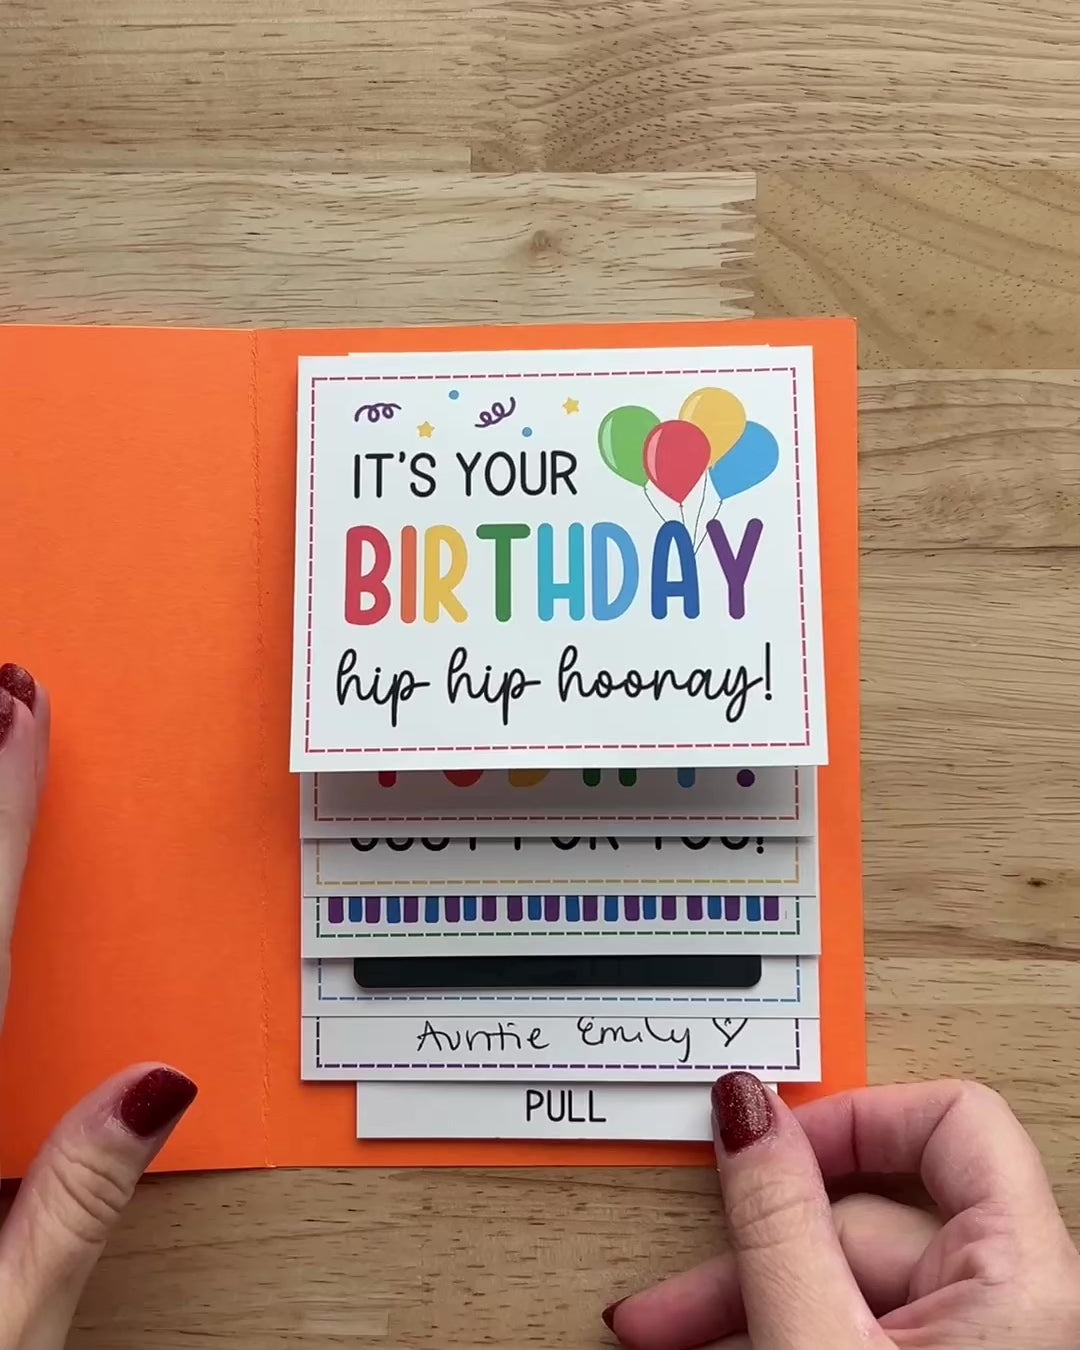 IT'S YOUR
BIRTHDAY
hip hip hooray!
Auntie Emily
PULL